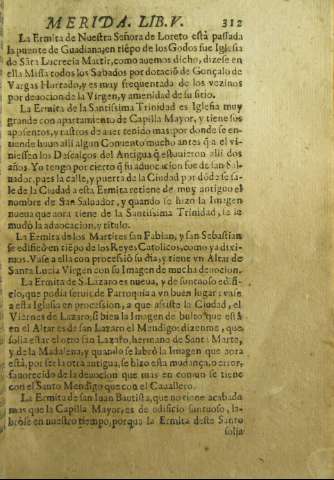 MERIDA. LIB. V. 312
La Ermita de Nuestra Señora de Loreto està passada
la puente de Guadiana, en tiẽpo de los Godos fue Iglesia
de Sãta Lucrecia Martir, como auemos dicho, dizese en
ella Missa todos los Sabados por dotaciõ de Gonçalo de
Vargas Hurtado, y es muy frequentada de los vezinos
por deuocion de la Virgen, y amenidad de su sitio.
La Ermita de la Santissima Trinidad es Iglesia muy
grande con apartamiento de Capilla Mayor, y tiene sus
aposentos, y rastros de auer tenido mas: por donde se en-
tiende huuo alli algun Conuento mucho antes q̃ a el vi-
niessen los Descalços del Antigua q̃ estuuieron alli dos
años. Yo tengo por cierto q̃ su aduocacion fue de san Sal-
uador, pues la calle, y puerta de la Ciudad por dõde se sa-
le de la Ciudad a esta Ermita retiene de muy antiguo el
nombre de San Saluador, y quando se hizo la Imagen
nueua que aora tiene de la Santissima Trinidad, se le
mudò la aduocacion, y titulo.
La Ermita de los Martires san Fabian, y san Sebastian
se edificò en tiẽpo de los Reyes Catolicos, como ya dixi-
mos. Vase a ella con processiõ su dia, y tiene vn Altar de
Santa Lucia Virgen con su Imagen de mucha deuocion.
La Ermita de S. Lazaro es nueua, y de suntuoso edifi-
cio, que podia seruir de Parroquia a vn buen lugar: vase
a esta Iglesia en procession, a que assiste la Ciudad, el
Viernes de Lazaro; si bien la Imagen de bulto que està
en el Altar es de san Lazaro el Mendigo: dizenme, que
solia estar el otro san Lazaro, hermano de Santa Marta,
y de la Madalena, y quando se labrò la Imagen que aora
està, por ser la otra antigua, se hizo esta mudança, o error,
fauorecido de la deuocion que mas en comun se tiene
con el Santo Mendigo que con el Cauallero.
La Ermita de san Iuan Bautista, que no tiene acabada
mas que la Capilla Mayor, es de edificio suntuoso, la-
bròse en nuestro tiempo, porque la Ermita deste Santo
solia